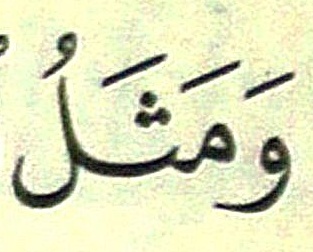 وَمَثَلُ